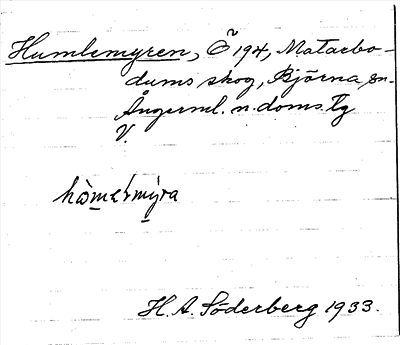 Humlemyren, Ö 194, Matarbo-
dums skog, Björna sn.
Ångerml. n. doms. lg
V.
hòmelmýra
H. A. Söderberg 1933.